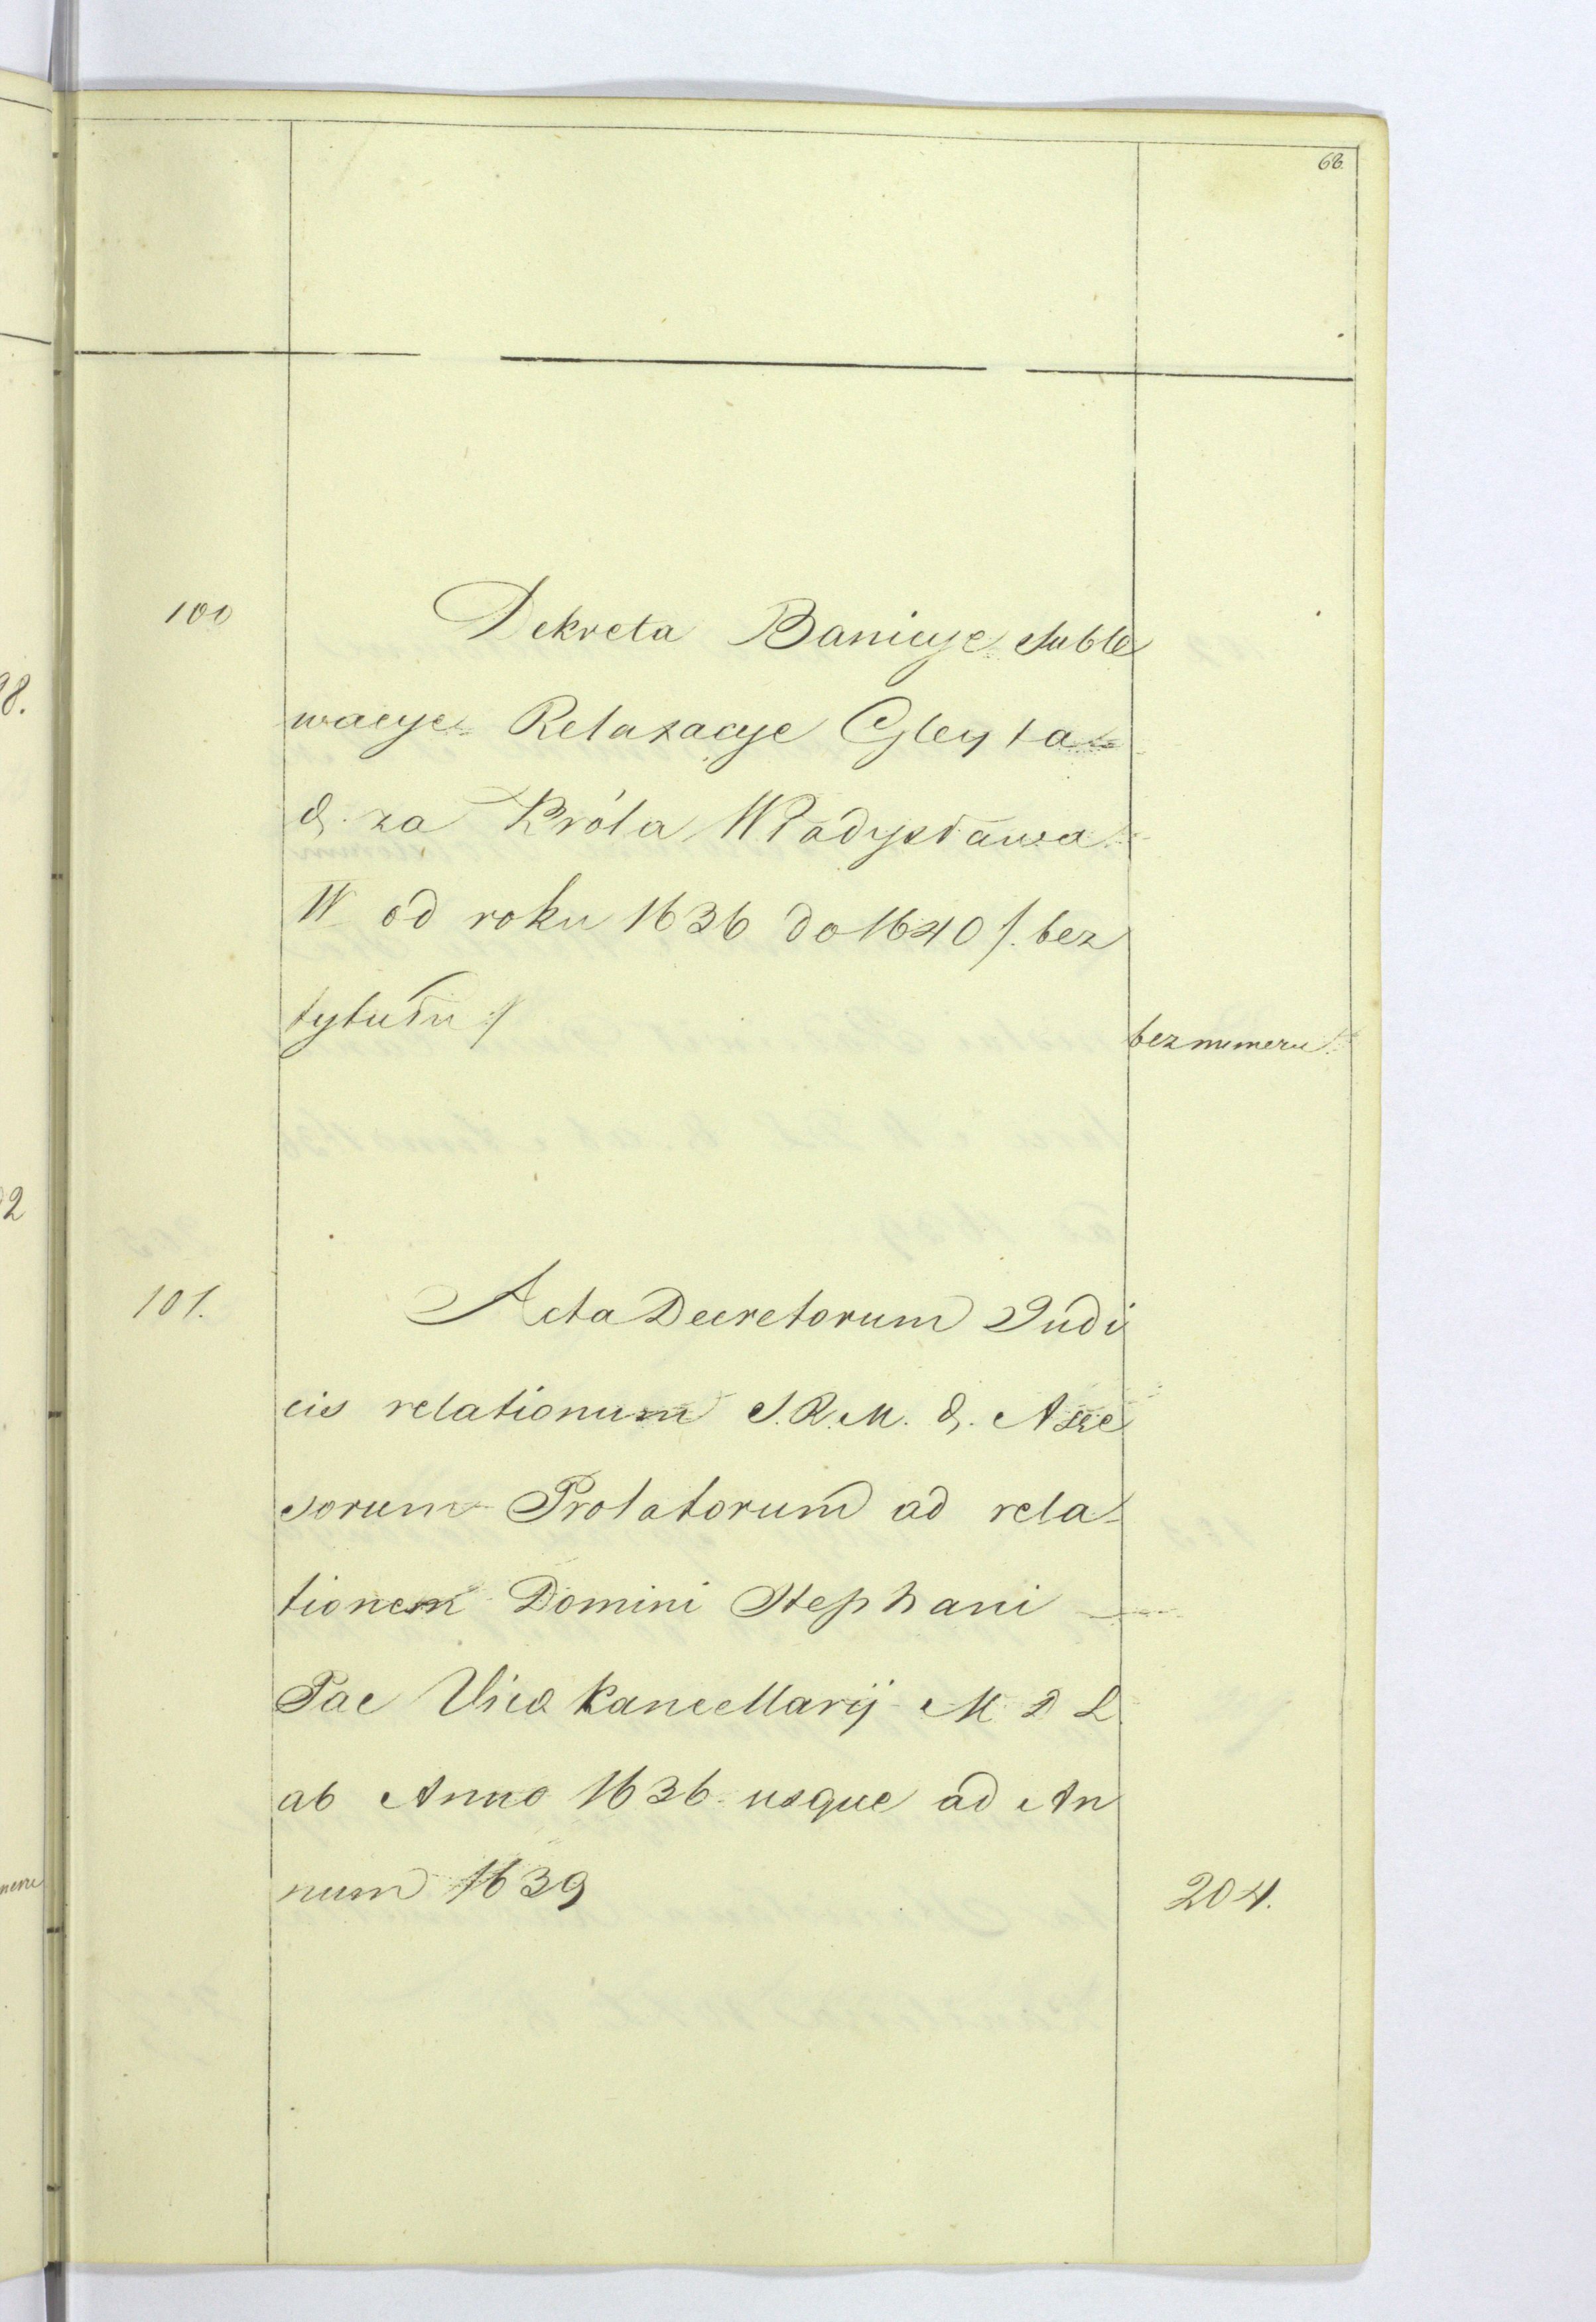 68.
100 Dekreta Banicye Suble
wacye Relaxacye Gleyta
& za Króla Władysława
IV od roku 1636 do 1640 /. bez
tytułu ./
bez numeru
101. Acta Decretorum Judi
cis relationum S. R. M. &. Asse
sorum Prolatorum ad rela
tionem Domini Stephani
Pac Vice Kancellarij M D L
ab Anno 1636 usque ad An
num 1639 204.